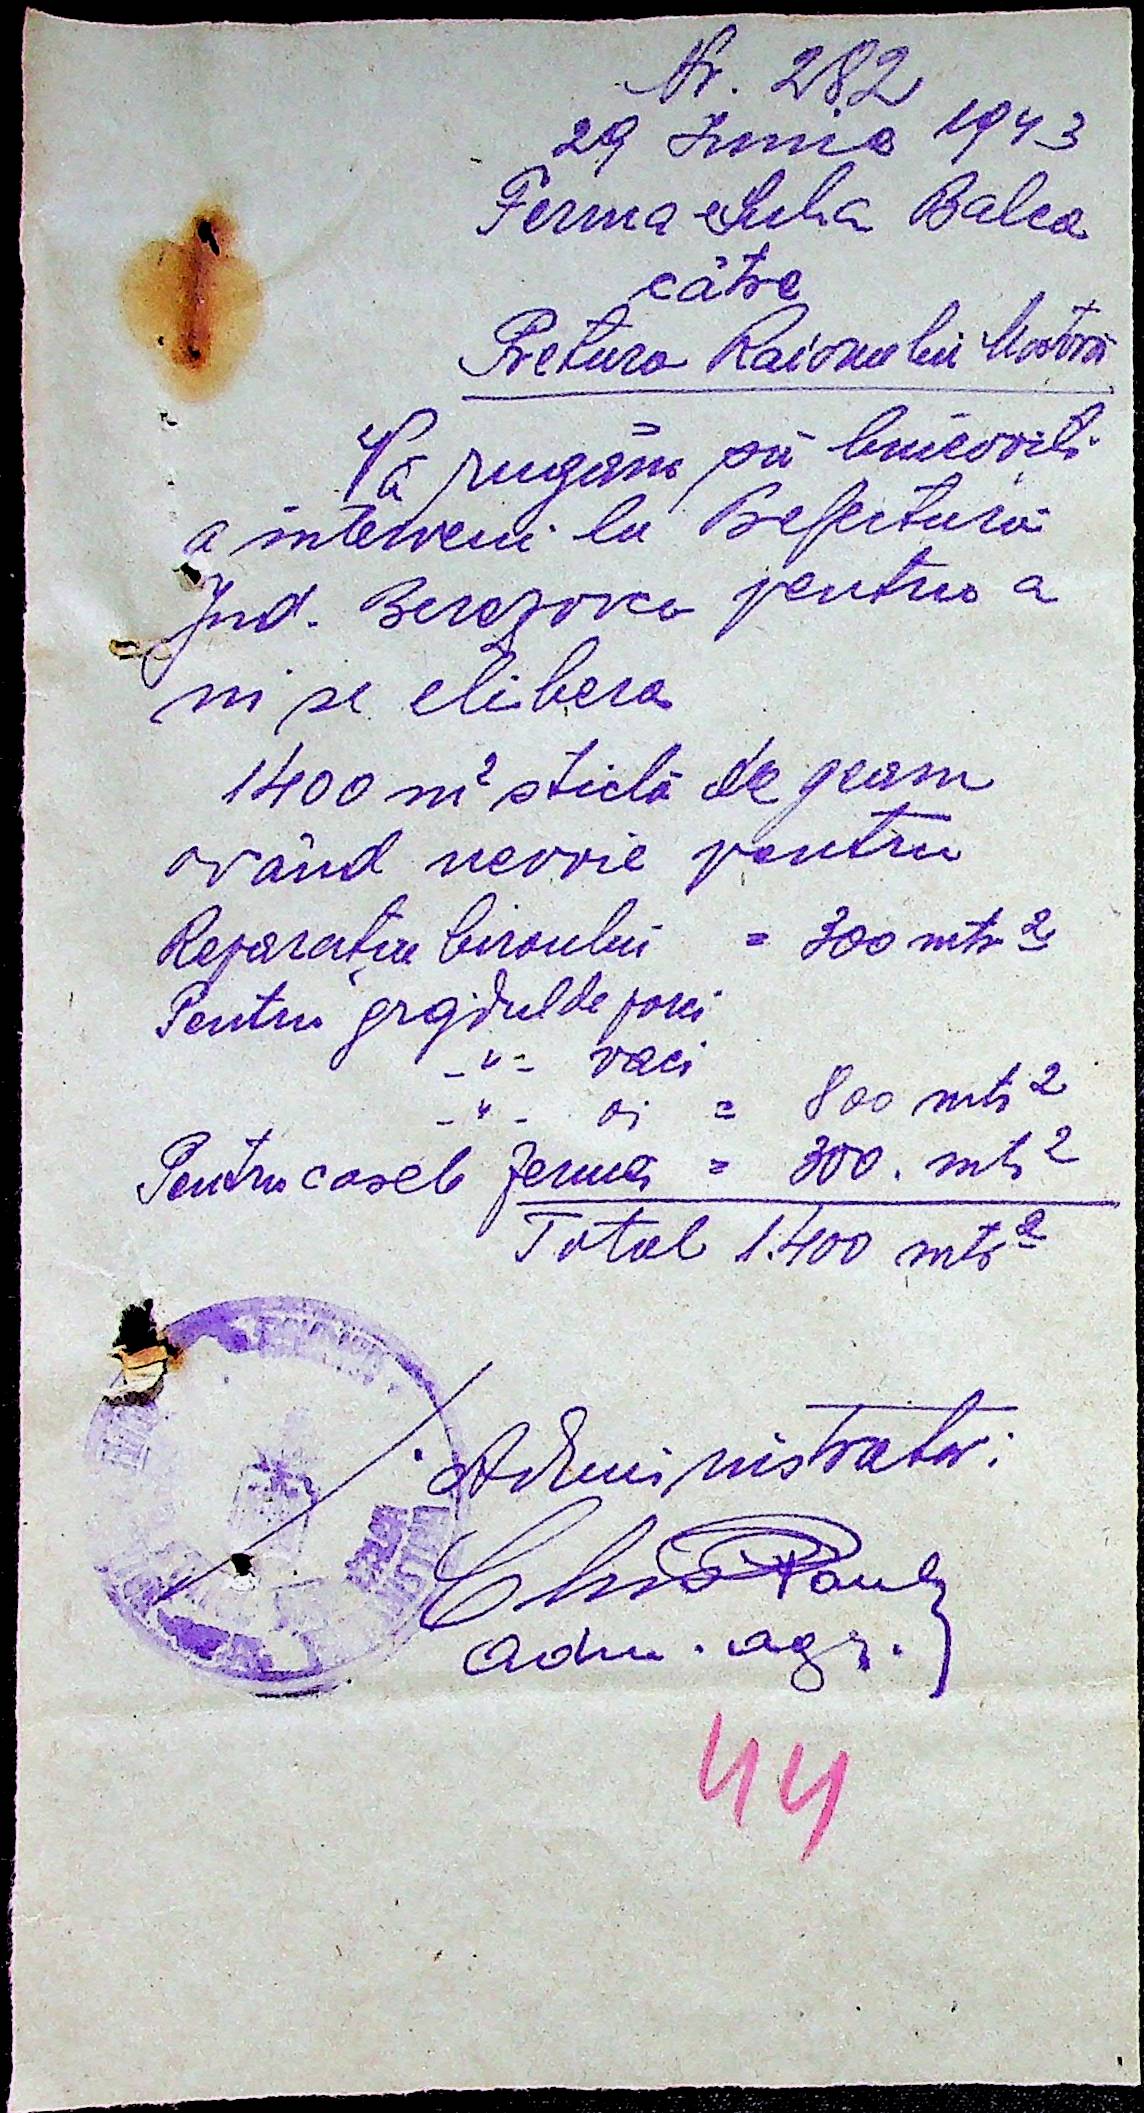 Nr. 282
29 Iunie 1943
Ferma Suha Balca
către
Pretura Raionului Mostovoi
Vă rugăm să binevoiți
a interveni la Prefectura
Jud. Berezovca pentru a
ni se elibera
1400 m² sticlă de geam
având nevoie pentru
Reparatia biroului = 300 mtr²
Pentru grajdul de porci
-"- vaci
-"- oi = 800 mtr²
Pentru casele fermei = 300. mtr²
Total 1.400 mtr²
Administrator:
adm. agr.
44